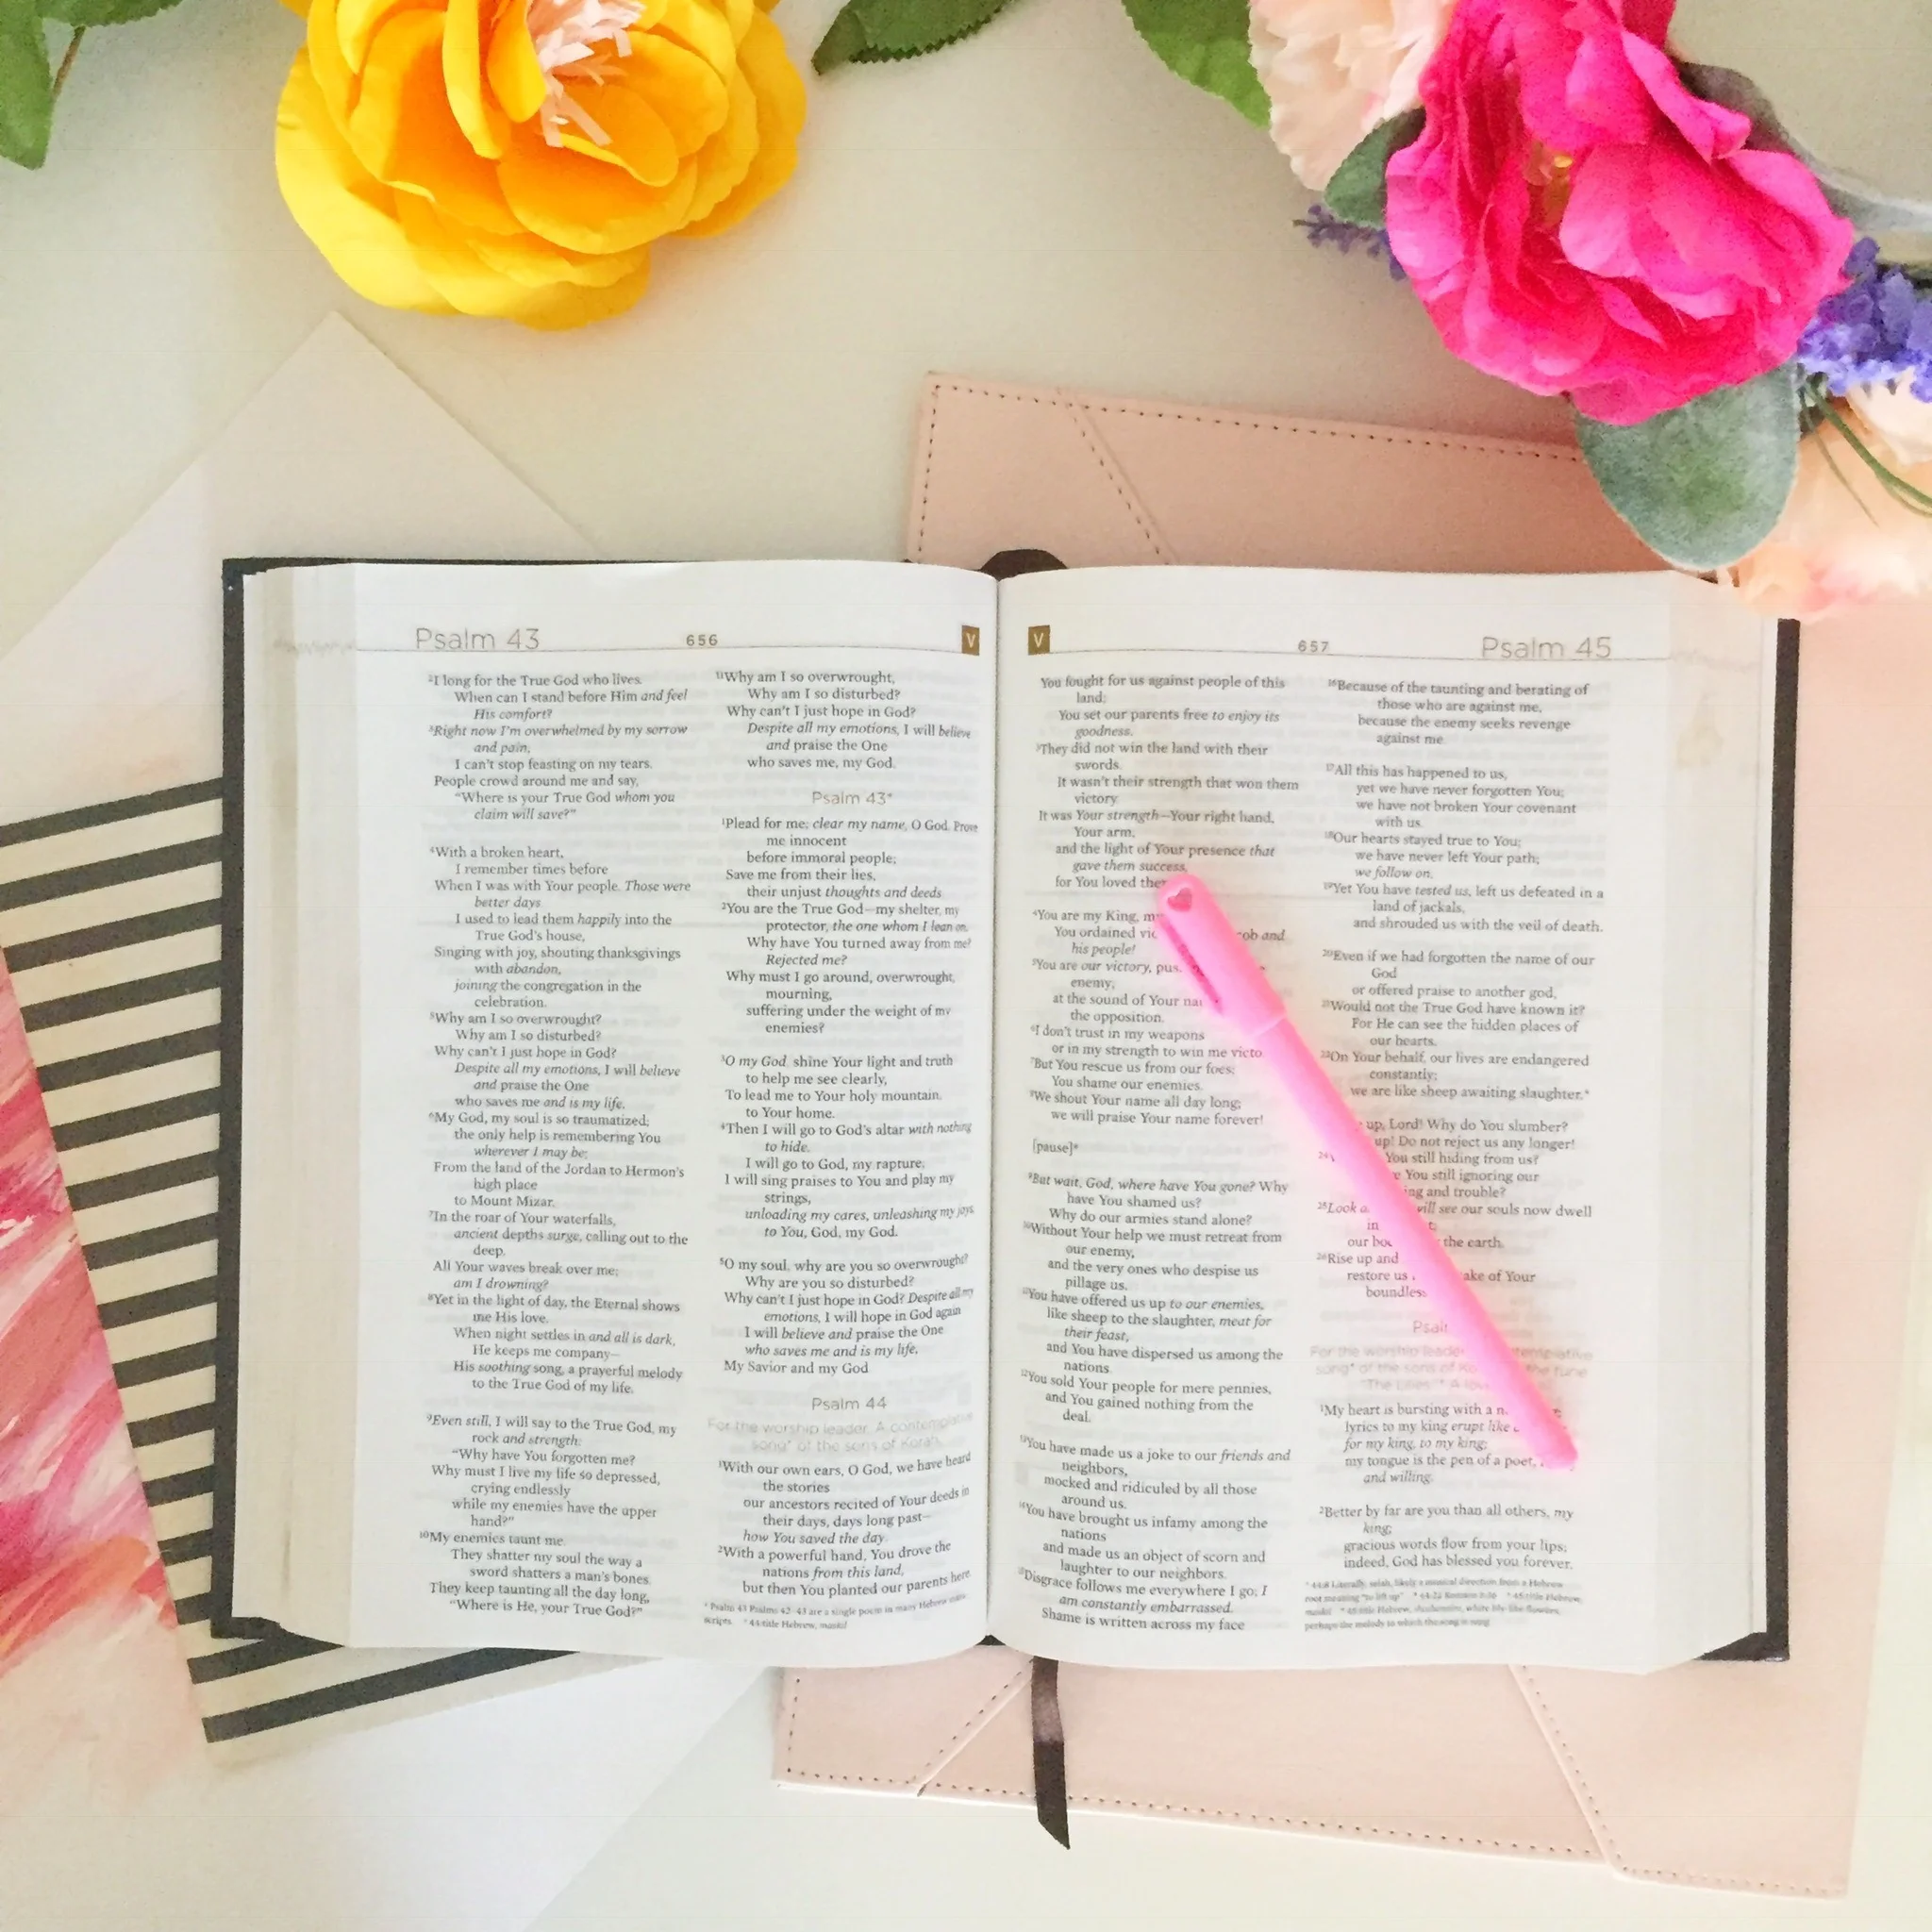 Psalm 43
656
V
²I long for the True God who lives.
When can I stand before Him and feel
His comfort?
³Right now I'm overwhelmed by my sorrow
and pain,
I can't stop feasting on my tears.
People crowd around me and say,
"Where is your True God whom you
claim will save?"
⁴With a broken heart,
I remember times before
When I was with Your people. Those were
better days.
I used to lead them happily into the
True God's house,
Singing with joy, shouting thanksgivings
with abandon,
joining the congregation in the
celebration.
⁵Why am I so overwrought?
Why am I so disturbed?
Why can't I just hope in God?
Despite all my emotions, I will believe
and praise the One
who saves me and is my life.
⁶My God, my soul is so traumatized;
the only help is remembering You
wherever I may be;
From the land of the Jordan to Hermon's
high place
to Mount Mizar.
⁷In the roar of Your waterfalls,
ancient depths surge, calling out to the
deep.
All Your waves break over me;
am I drowning?
⁸Yet in the light of day, the Eternal shows
me His love.
When night settles in and all is dark,
He keeps me company—
His soothing song, a prayerful melody
to the True God of my life.
⁹Even still, I will say to the True God, my
rock and strength:
"Why have You forgotten me?
Why must I live my life so depressed,
crying endlessly
while my enemies have the upper
hand?"
¹⁰My enemies taunt me.
They shatter my soul the way a
sword shatters a man's bones.
They keep taunting all the day long,
"Where is He, your True God?"
¹¹Why am I so overwrought,
Why am I so disturbed?
Why can't I just hope in God?
Despite all my emotions, I will believe
and praise the One
who saves me, my God.
Psalm 43*
¹Plead for me; clear my name, O God. Prove
me innocent
before immoral people;
Save me from their lies,
their unjust thoughts and deeds
²You are the True God—my shelter, my
protector, the one whom I lean on.
Why have You turned away from me?
Rejected me?
Why must I go around, overwrought,
mourning,
suffering under the weight of my
enemies?
³O my God, shine Your light and truth
to help me see clearly,
To lead me to Your holy mountain,
to Your home.
⁴Then I will go to God's altar with nothing
to hide.
I will go to God, my rapture;
I will sing praises to You and play my
strings,
unloading my cares, unleashing my joys,
to You, God, my God.
⁵O my soul, why are you so overwrought?
Why are you so disturbed?
Why can't I just hope in God? Despite all my
emotions, I will hope in God again
I will believe and praise the One
who saves me and is my life,
My Savior and my God
Psalm 44
For the worship leader. A contemplative
song* of the sons of Korah.
¹With our own ears, O God, we have heard
the stories
our ancestors recited of Your deeds in
their days, days long past—
how You saved the day.
²With a powerful hand, You drove the
nations from this land,
but then You planted our parents here
* Psalm 43 Psalms 42–43 are a single poem in many Hebrew manu-
scripts. * 44:title Hebrew, maskil
V
657
Psalm 45
You fought for us against people of this
land;
You set our parents free to enjoy its
goodness.
³They did not win the land with their
swords.
It wasn't their strength that won them
victory.
It was Your strength—Your right hand,
Your arm,
and the light of Your presence that
gave them success,
for You loved
⁴You are my King,
You ordained ob and
his people!
⁵You are our victory,
enemy;
at the sound of Your
the opposition.
⁶I don't trust in my weapons
or in my strength to win me
⁷But You rescue us from our foes;
You shame our enemies.
⁸We shout Your name all day long;
we will praise Your name forever!
[pause]*
⁹But wait, God, where have You gone? Why
have You shamed us?
Why do our armies stand alone?
¹⁰Without Your help we must retreat from
our enemy,
and the very ones who despise us
pillage us.
¹¹You have offered us up to our enemies,
like sheep to the slaughter, meat for
their feast,
and You have dispersed us among the
nations.
¹²You sold Your people for mere pennies,
and You gained nothing from the
deal.
¹³You have made us a joke to our friends and
neighbors,
mocked and ridiculed by all those
around us.
¹⁴You have brought us infamy among the
nations
and made us an object of scorn and
laughter to our neighbors.
¹⁵Disgrace follows me everywhere I go; I
am constantly embarrassed.
Shame is written across my face
¹⁶Because of the taunting and berating of
those who are against me,
because the enemy seeks revenge
against me
¹⁷All this has happened to us,
yet we have never forgotten You;
we have not broken Your covenant
with us.
¹⁸Our hearts stayed true to You;
we have never left Your path;
we follow on.
¹⁹Yet You have tested us, left us defeated in a
land of jackals,
and shrouded us with the veil of death.
²⁰Even if we had forgotten the name of our
God
or offered praise to another god,
²¹Would not the True God have known it?
For He can see the hidden places of
our hearts.
²²On Your behalf, our lives are endangered
constantly;
we are like sheep awaiting slaughter.*
up, Lord! Why do You slumber?
up! Do not reject us any longer!
²⁴ You still hiding from us?
You still ignoring our
and trouble?
²⁵Look will see our souls now dwell
in
our the earth.
²⁶Rise up and
restore us of Your
boundless
For the worship
song* of the sons of the tune
"The Lilies."* A
¹My heart is bursting with a
lyrics to my king erupt like
for my king, to my king;
my tongue is the pen of a poet,
and willing.
²Better by far are you than all others, my
king;
gracious words flow from your lips;
indeed, God has blessed you forever.
* 44:8 Literally, selah, likely a musical direction from a Hebrew
root meaning "to lift up" * 44:22 Romans 8:36 * 45:title Hebrew,
maskil * 45:title Hebrew, shoshannim, white lily-like flowers,
perhaps the melody to which the song is sung